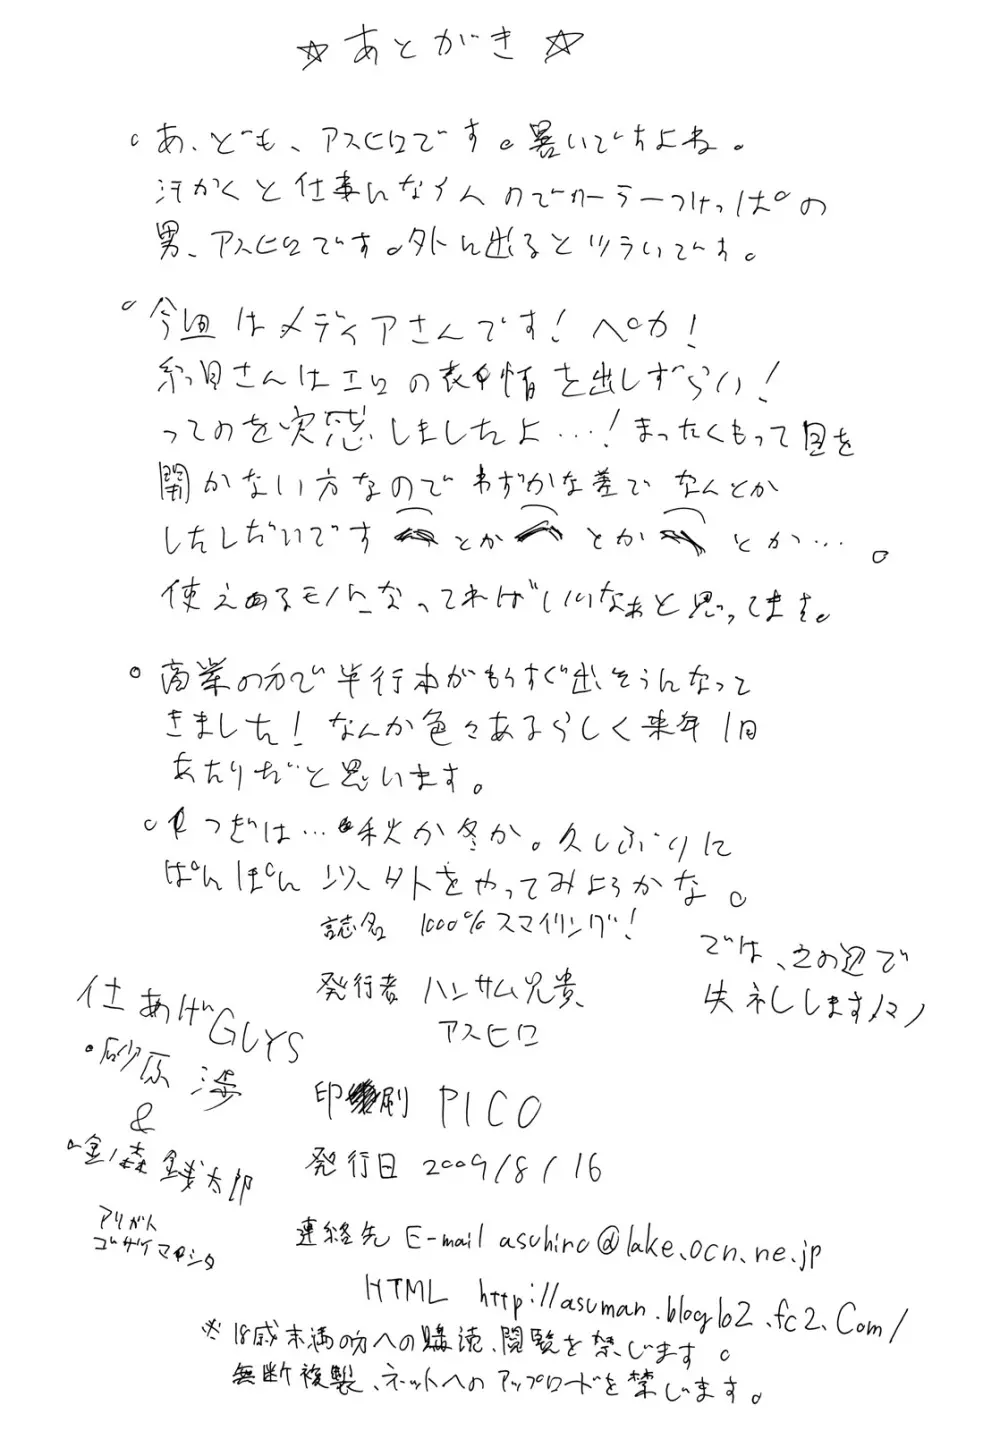 ☆あとがき☆
。あ、ども、アスヒロです。暑いですよね。
汗かくと仕事になんないのでクーラーつけっぱの
男、アスヒロです。外に出るとツライです。
。今回はメディアさんです!ペカ!
糸目さんはエロの表情を出しずらい!
ってのを実感しましたよ…!まったくもって目を
開かない方なのでわずかな差でなんとか
したしだいです とか とか とか…。
使えるモノになってればいいなぁと思ってます。
。商業の方で単行本がもうすぐ出そうになって
きました!なんか色々あるらしく来年1月
あたりだと思います。
。つぎは…秋か冬か。久しぶりに
ぱんぽん以外をやってみようかな。
誌名 1000%スマイリング!
では、この辺で
失礼しますノシ
発行者 ハンサム兄貴、
アスヒロ
仕あげGUYS
・砂原渉
&
。金ノ森銭太郎
アリガト
ゴザイマシタ
印刷 PICO
発行日 2009/8/16
連絡先 E-mail asuhiro@lake.ocn.ne.jp
HTML http://asuman.blog102.fc2.com/
※18歳未満の方への購読、閲覧を禁じます。
無断複製、ネットへのアップロードを禁じます。